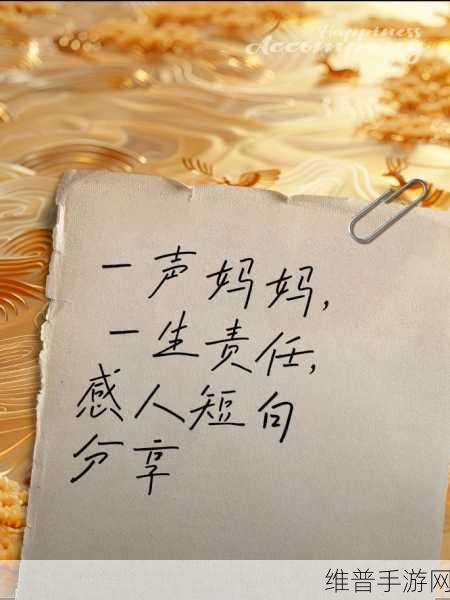 Happiness
Accompany
一声妈妈,
一生责任,
感人短句
分享
维普手游网